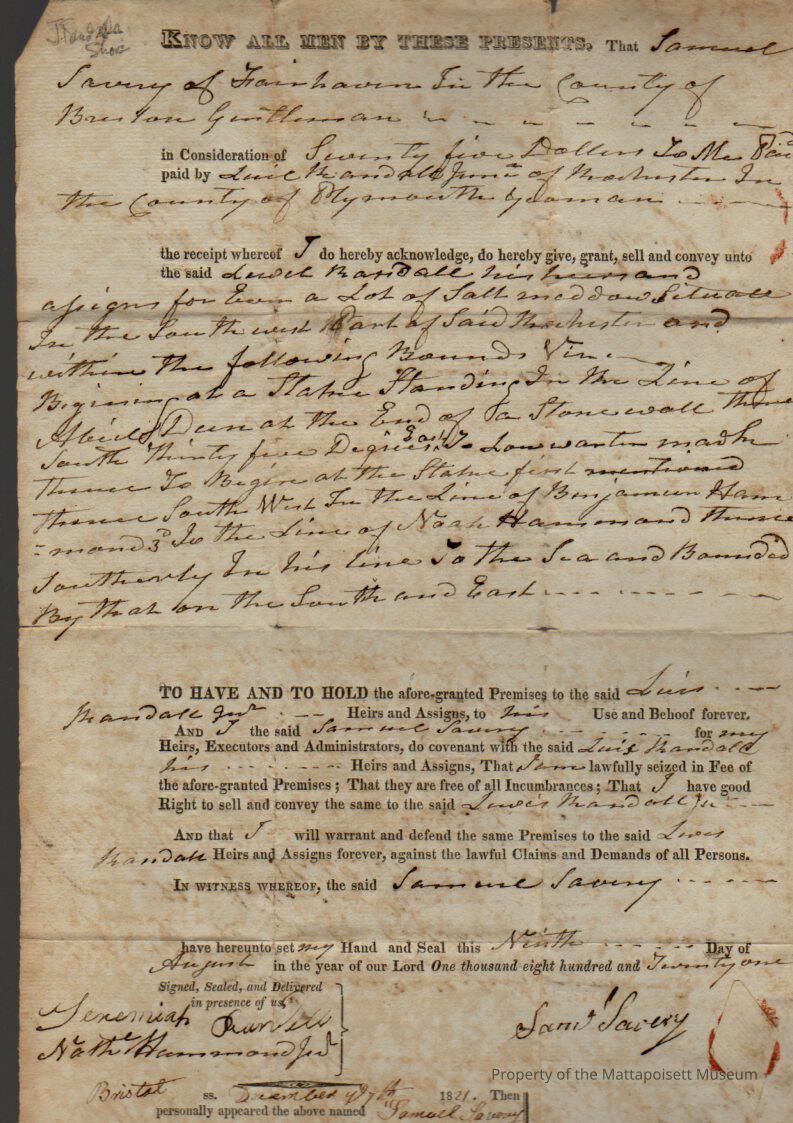 KNOW ALL MEN BY THESE PRESENTS, That Samuel
Savery of Fairhaven In the County of
Bristow Gentleman
in Consideration of Seventy five Dollars To Me Paid
paid by Luis Randall Junr of Rochester In
the County of Plymouth yeoman
the receipt whereof I do hereby acknowledge, do hereby give, grant, sell and convey unto
the said Lewis Randall his heirs and
asigns for Ever a Lot of Salt meddow Situate
In the South west Part of Said Rochester and
within the following Bounds Viz
Begining at a Stake Standing In the Line of
Deen at the End of a Stone wall thence
South Thirty five Degrees East To Low warter
thence To Begin at the Stake first mentioned
thence South West In the Line of Benjamin Ham
=mond 3d To the Line of Noah Hammond thence
Southerly In his line To the Sea and Bounded
By that on the South and East
TO HAVE AND TO HOLD the afore-granted Premises to the said Luis
Randall Junr Heirs and Assigns, to his Use and Behoof forever.
AND I the said Samuel Savery for my
Heirs, Executors and Administrators, do covenant with the said Luis Randall
his Heirs and Assigns, That I am lawfully seized in Fee of
the afore-granted Premises; That they are free of all Incumbrances; That I have good
Right to sell and convey the same to the said Lewis Randall Jr
AND that I will warrant and defend the same Premises to the said Lewis
Randall Heirs and Assigns forever, against the lawful Claims and Demands of all Persons.
IN WITNESS WHEREOF, the said Samuel Savery
have hereunto set my Hand and Seal this Ninth Day of
August in the year of our Lord One thousand eight hundred and Twenty one
Signed, Sealed, and Delivered
in presence of us,
Jeremiah
Nathl Hammond Jur
Saml Savery
Property of the Mattapoisett Museum
Bristol ss. December 1821. Then
personally appeared the above named Samuel Savery